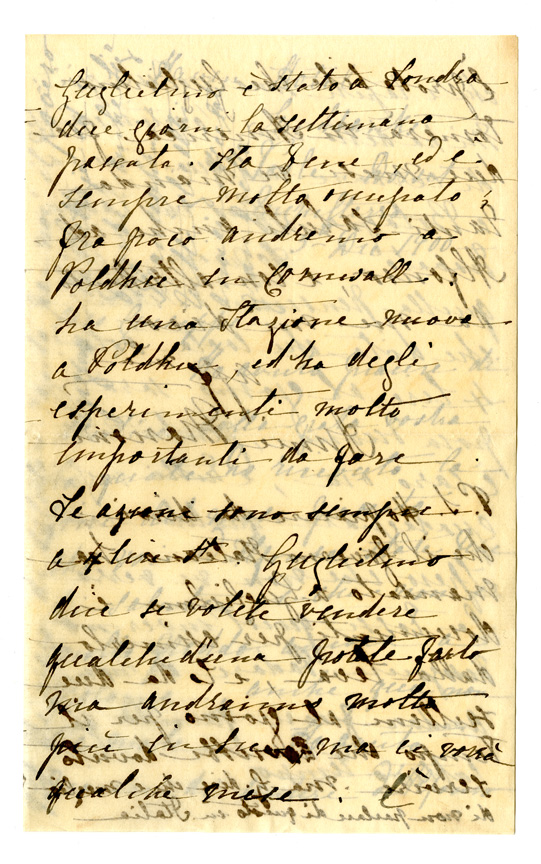 Guglielmo è stato a Londra
due giorni la settimana
passata. Sta bene, ed è
sempre molto occupato;
fra poco andremo a
Poldhu in Cornwall:
ha una Stazione nuova
a Poldhu, ed ha degli
esperimenti molto
importanti da fare.
Le azioni sono sempre
a 4 lire st. Guglielmo
dice se volete vendere
qualcheduna potete farlo
ma andranno molto
più in su, ma ci vorrà
qualche mese. È